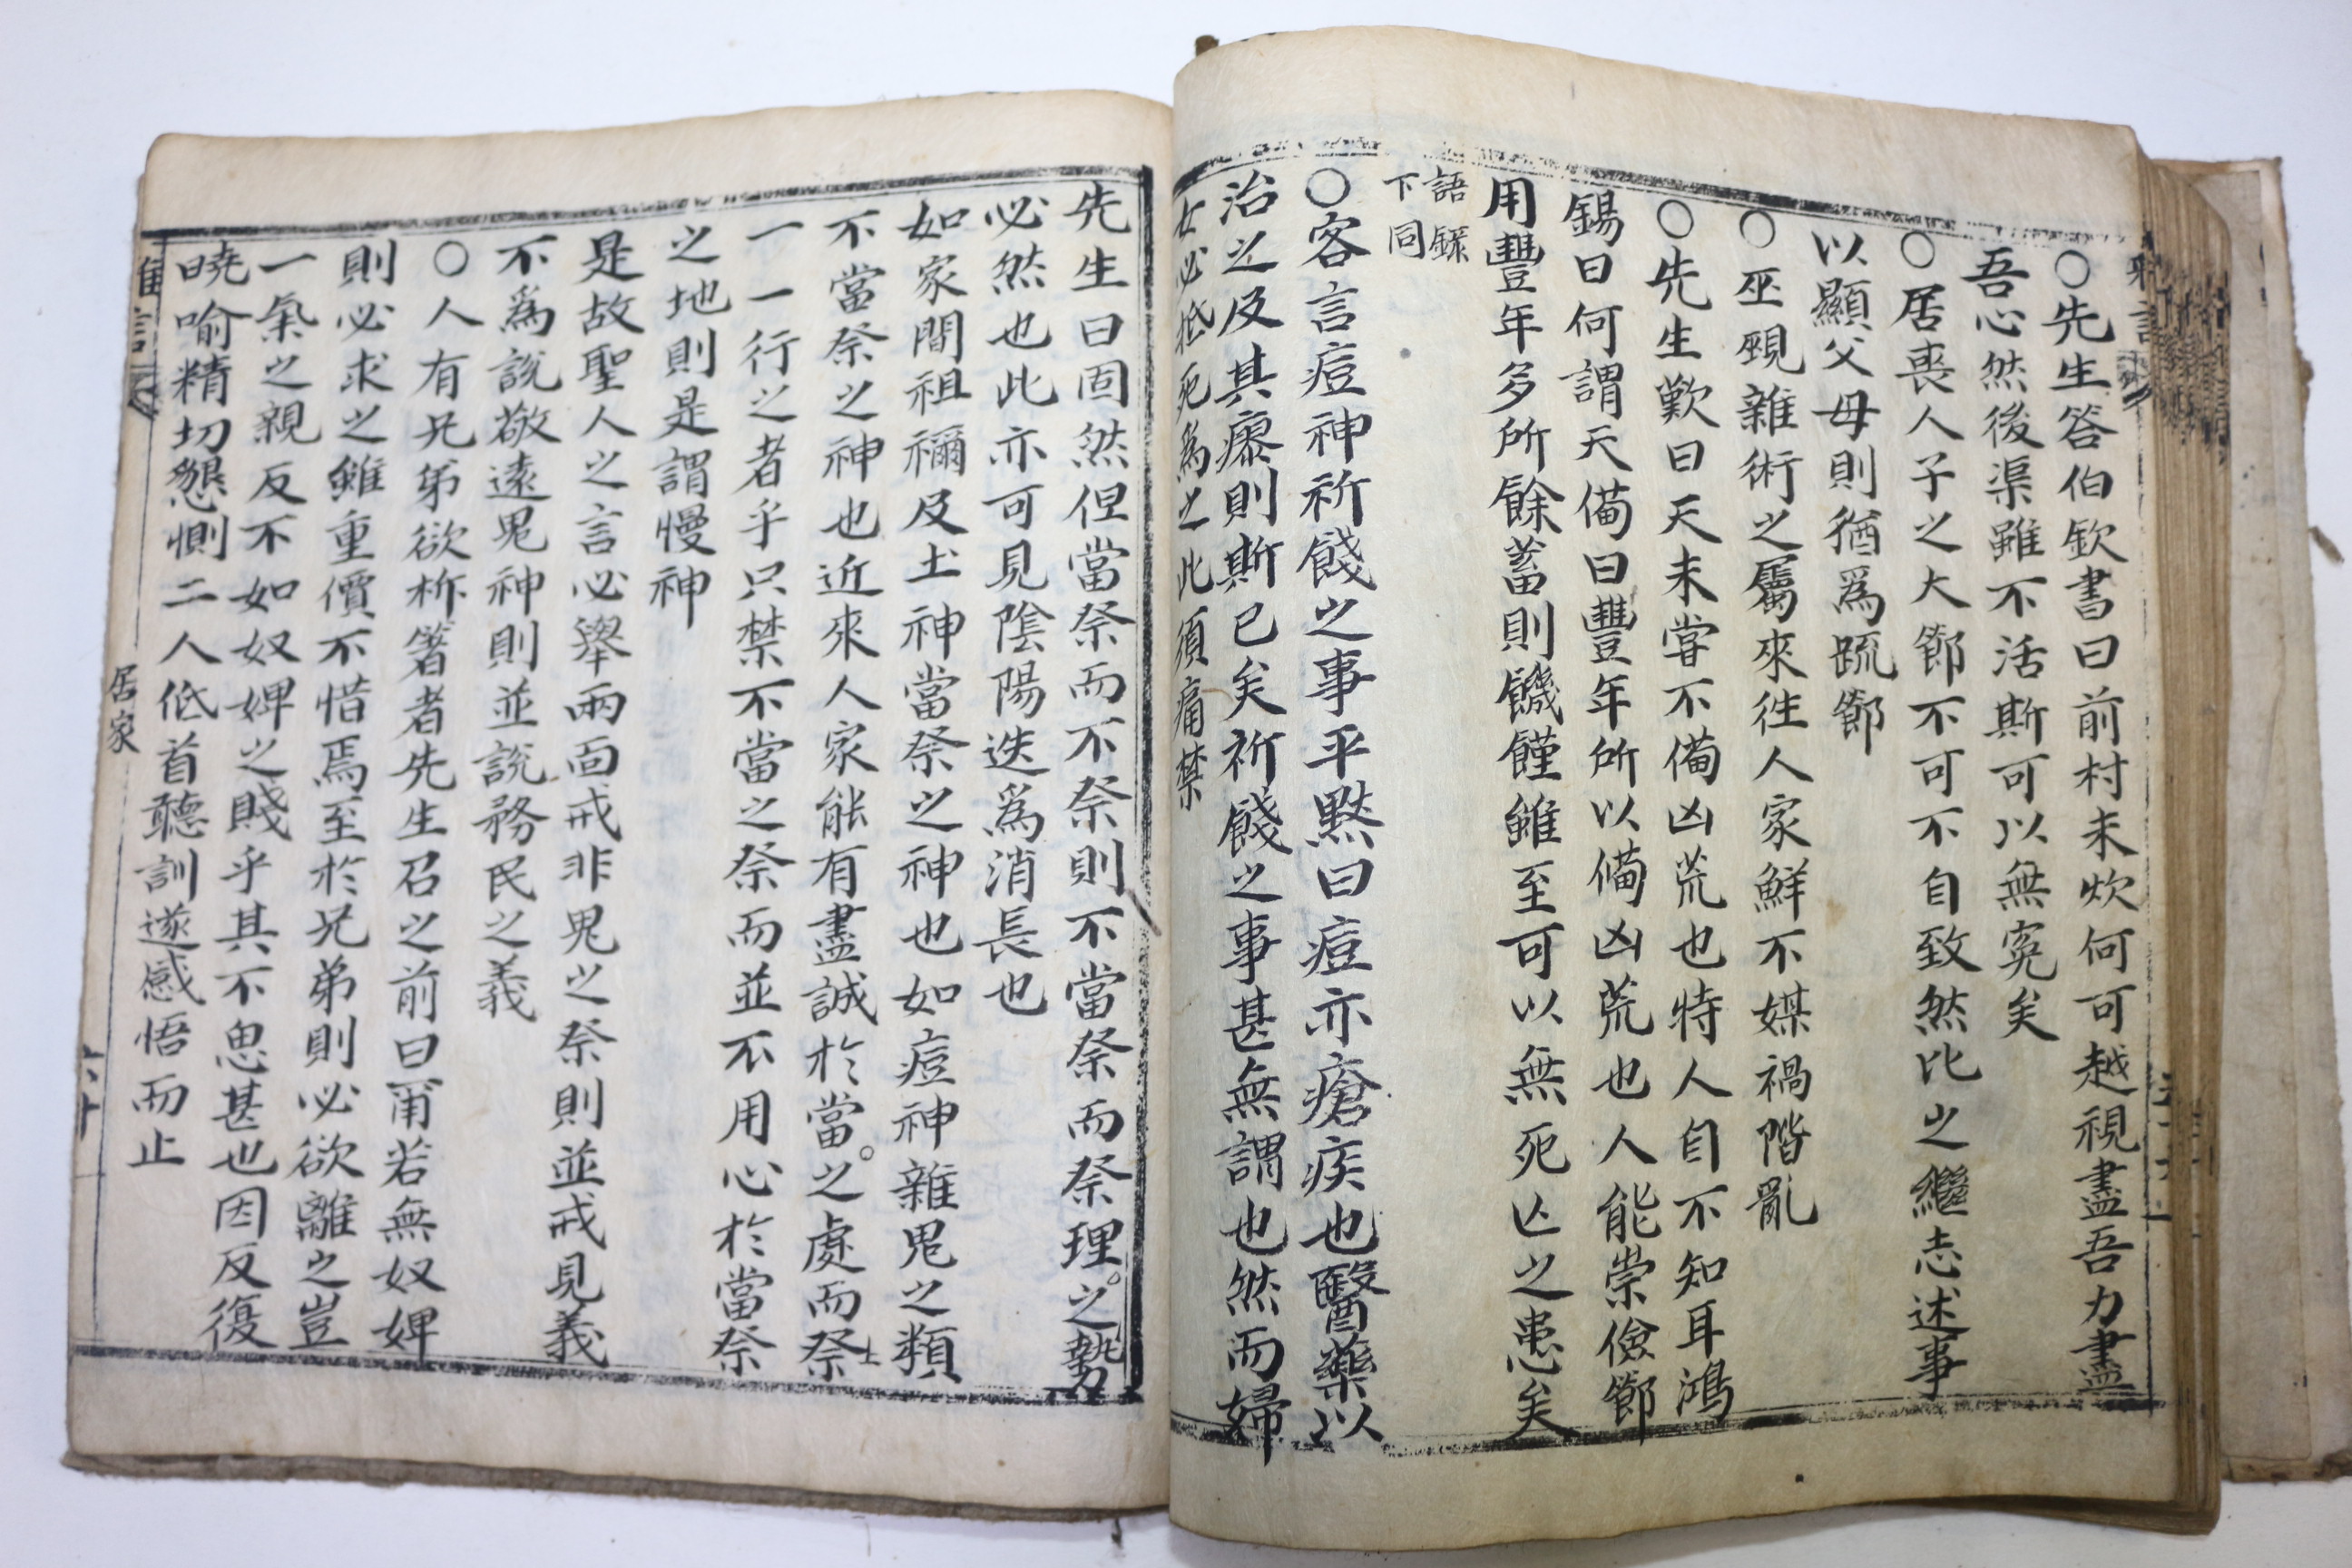 ○先生答伯欽書曰前村未炊何可越視盡吾力盡
吾心然後渠雖不活斯可以無寃矣
○居喪人子之大節不可不自致然比之繼志述事
以顯父母則猶爲疏節
○巫覡雜術之屬來往人家鮮不媒禍階亂
○先生歎曰天未甞不備凶荒也特人自不知耳鴻
錫曰何謂天備曰豐年所以備凶荒也人能崇儉節
用豐年多所餘蓄則饑饉雖至可以無死亡之患矣
語錄
下同
○客言痘神祈餞之事平黙曰痘亦瘡疾也醫藥以
治之及其瘳則斯已矣祈餞之事甚無謂也然而婦
女必抵死爲之此須痛禁
先生曰固然但當祭而不祭則不當祭而祭理之勢
必然也此亦可見陰陽迭爲消長也
如家間祖禰及土神當祭之神也如痘神雜鬼之類
不當祭之神也近來人家能有盡誠於當之處而祭
一一行之者乎只禁不當之祭而並不用心於當祭
之地則是謂慢神
是故聖人之言必擧兩面戒非鬼之祭則並戒見義
不爲說敬遠鬼神則並說務民之義
○人有兄弟欲析箸者先生召之前曰甭若無奴婢
則必求之雖重價不惜焉至於兄弟則必欲離之豈
一氣之親反不如奴婢之賤乎其不思甚也因反復
曉喻精切懇惻二人低首聽訓遂感悟而止
居家
六十